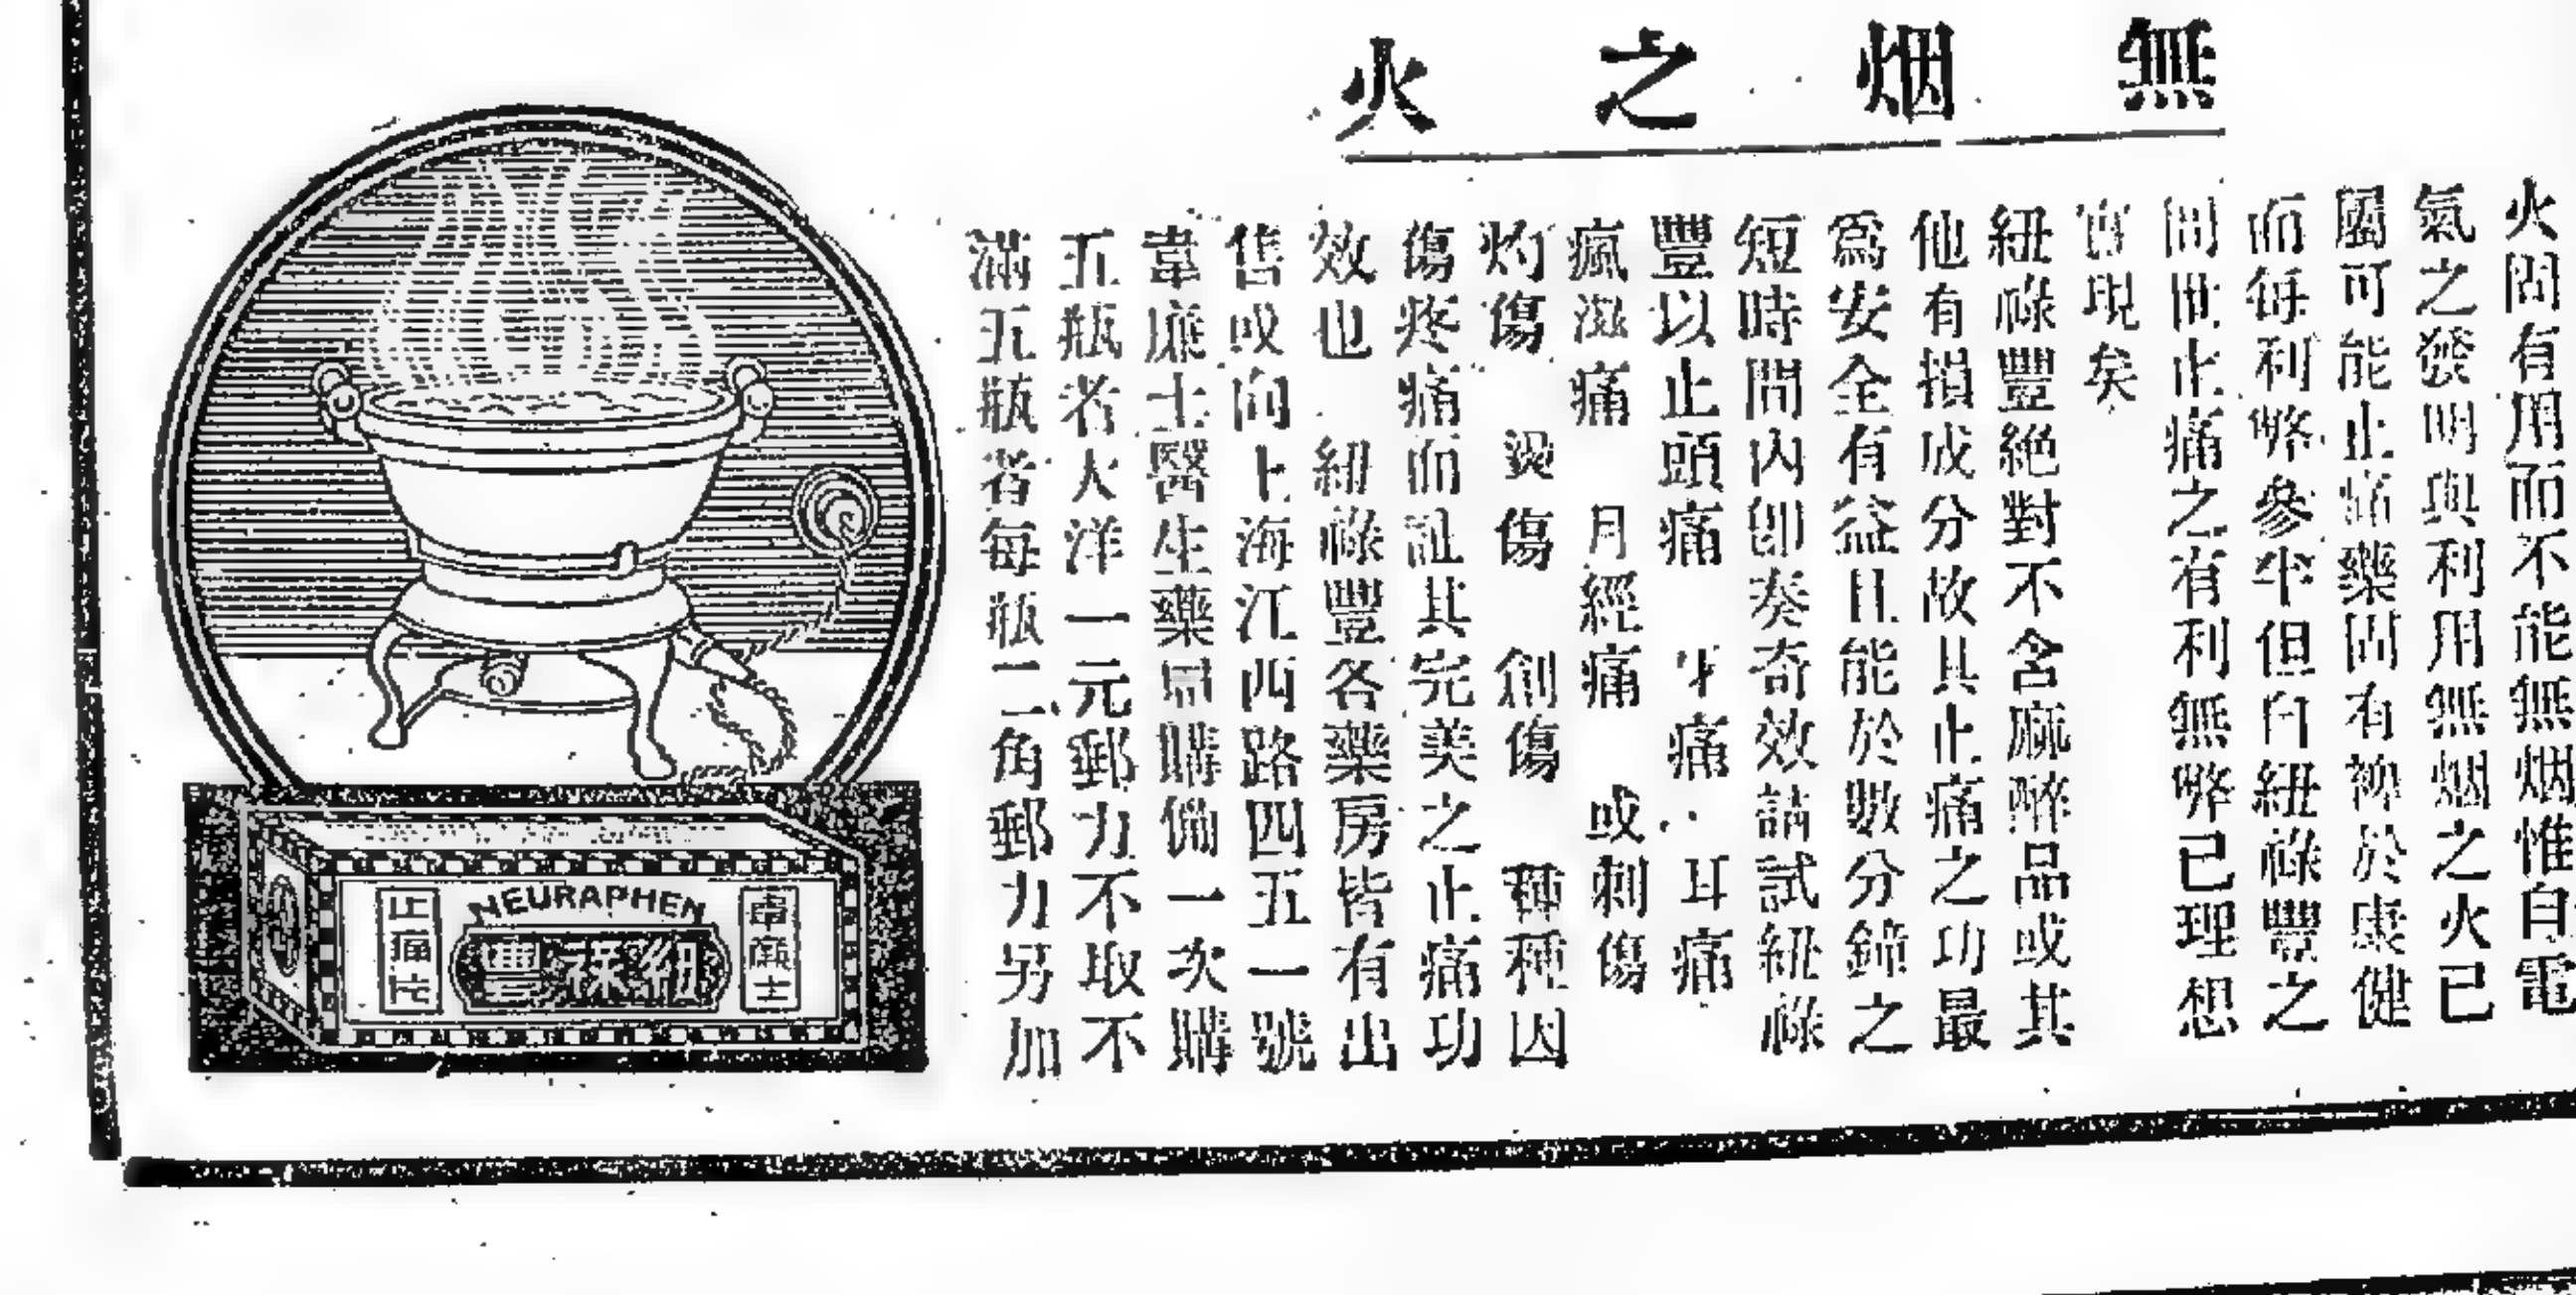 無烟之火
火固有用而不能無烟惟自電
氣之發明與利用無烟之火已
屬可能止痛藥固有裨於康健
而每利弊參半但自紐祿豐之
問世止痛之有利無弊已理想
實現矣
紐祿豐絕對不含麻醉品或其
他有損成分故其止痛之功最
爲安全有益且能於數分鐘之
短時間內卽奏奇效請試紐祿
豐以止頭痛 牙痛 耳痛
瘋濕痛 月經痛 或刺傷
灼傷 燙傷 創傷 種種因
傷疼痛而証其完美之止痛功
效也 紐祿豐各藥房皆有出
售或向上海江西路四五一號
韋廉士醫生藥局購備一次購
五瓶者大洋一元郵力不取不
滿五瓶者每瓶二角郵力另加
NEURAPHEN
韋廉士
紐祿豐
止痛片